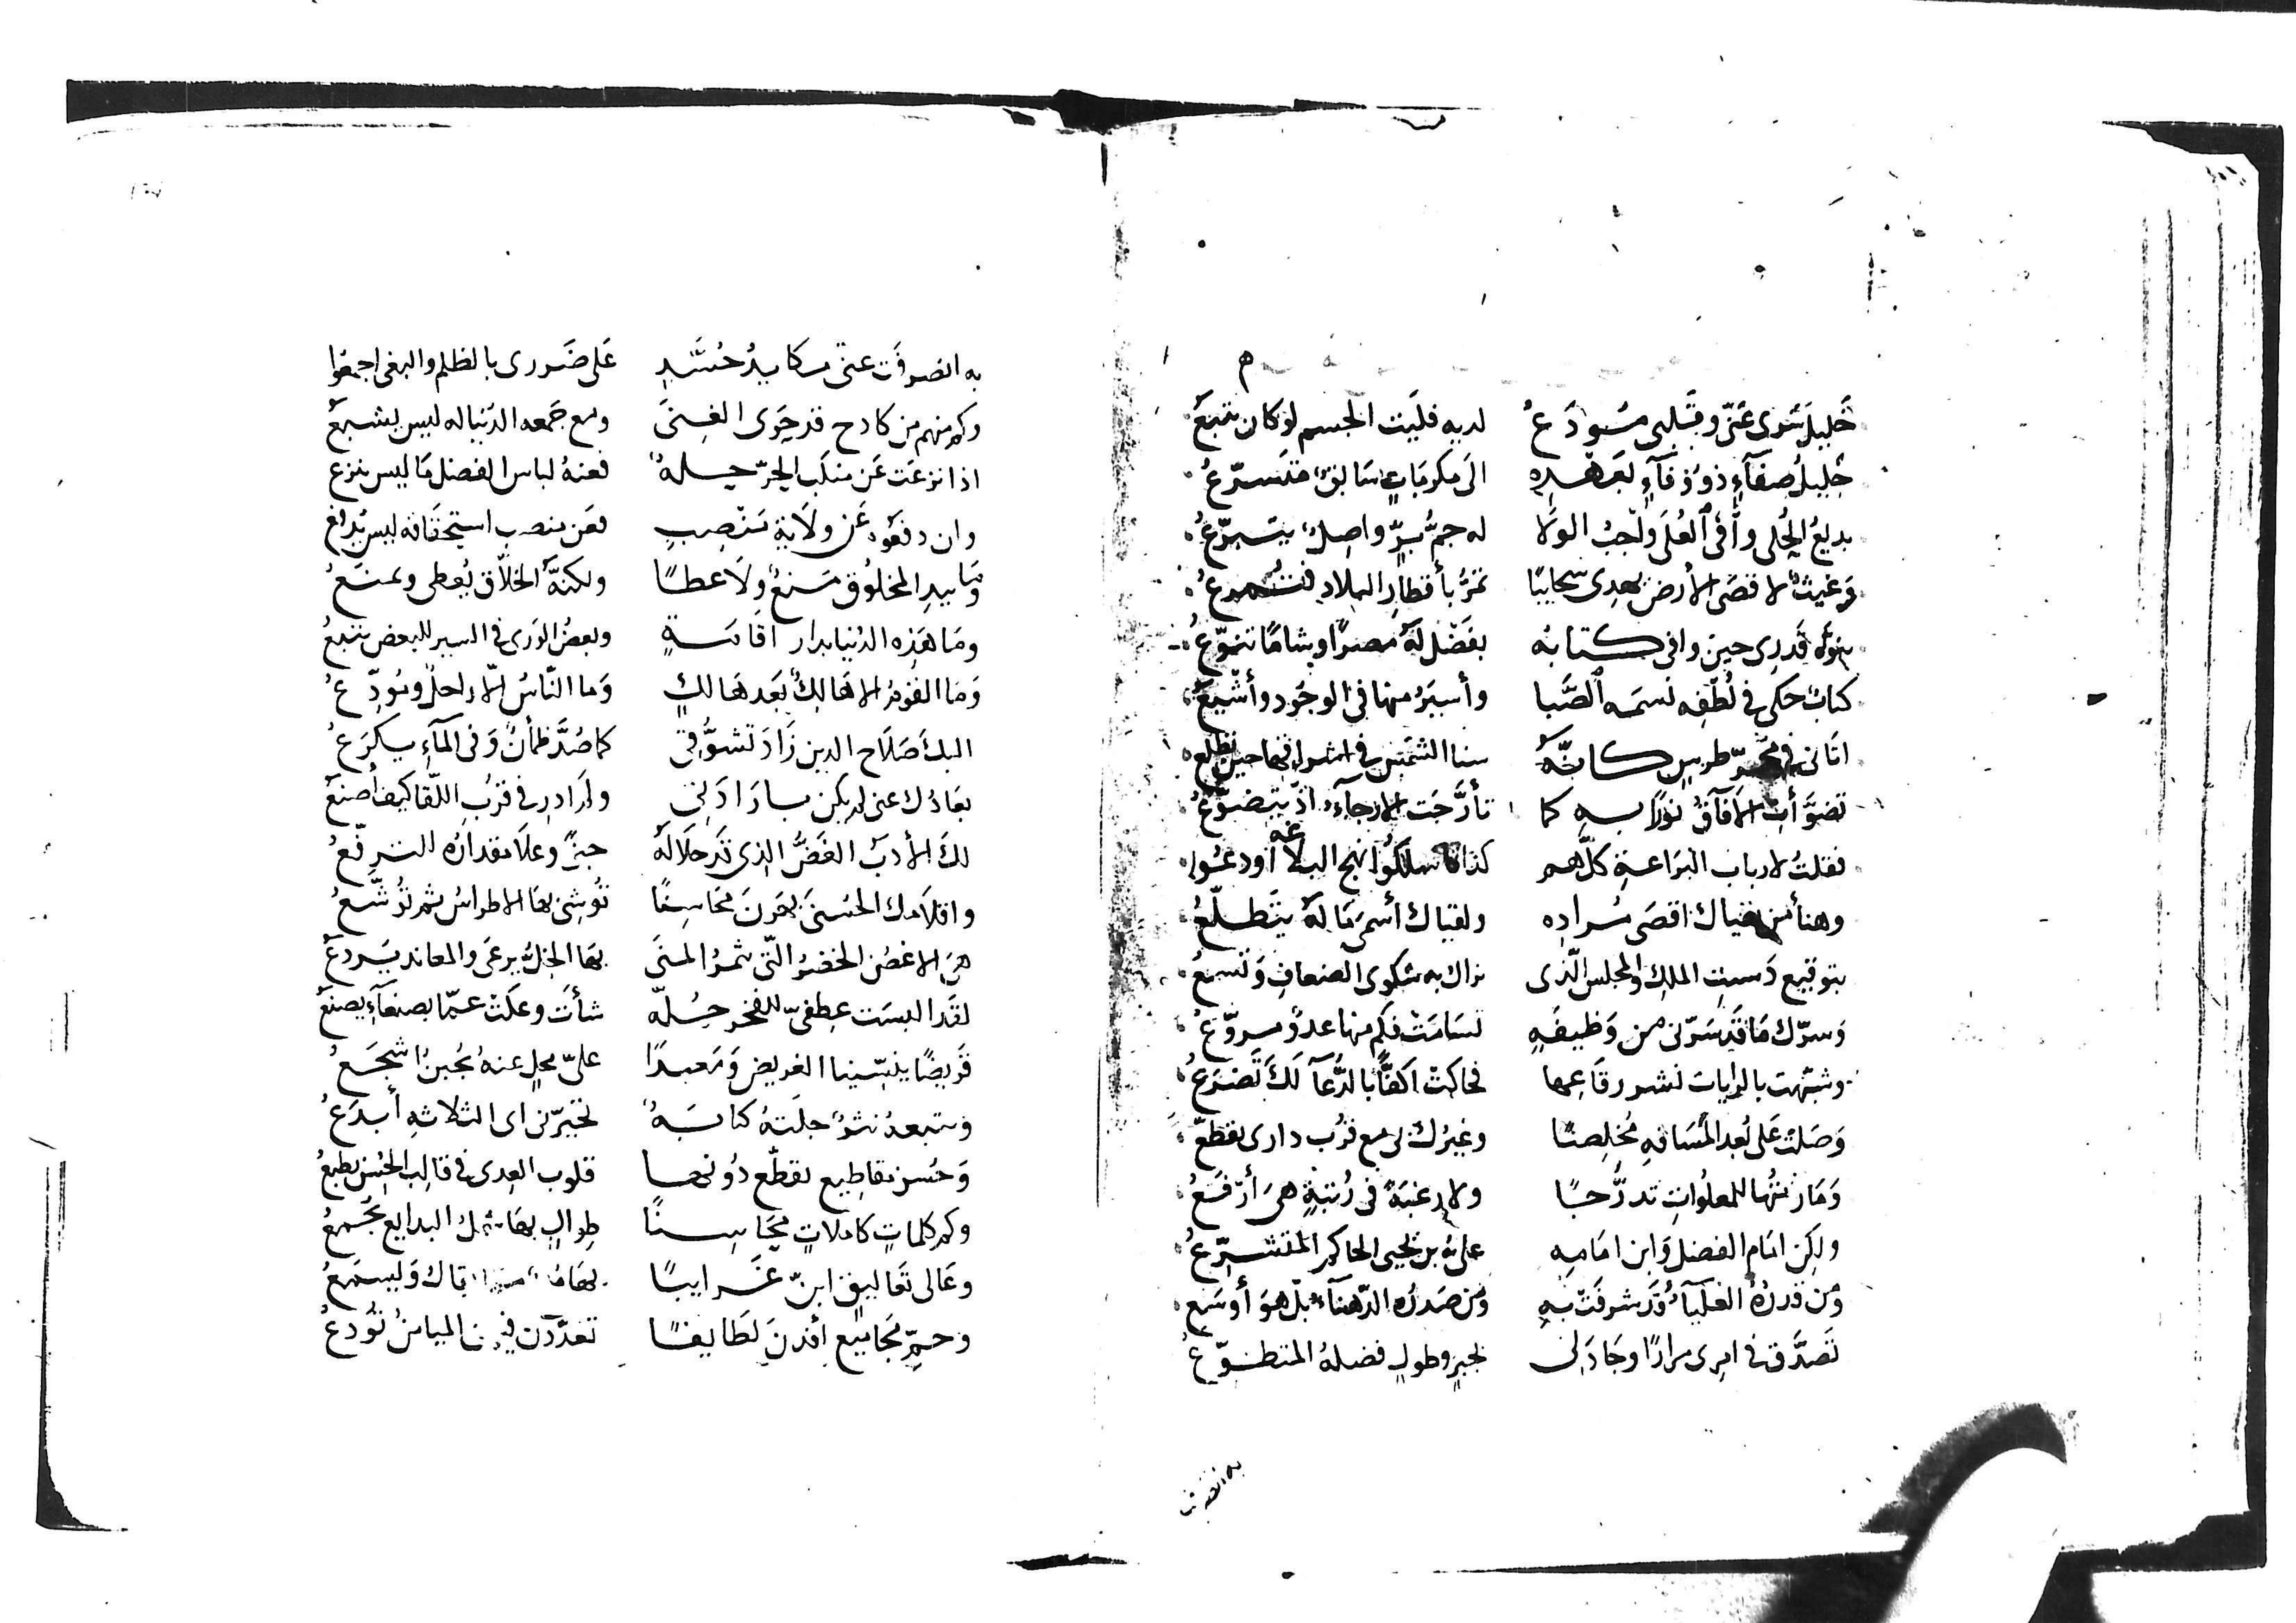 خَليلي نَوى عَنّى وقَلبى مُودَعُ لديه فليت الجسم لو كان يتبعُ
خليلُ صفآءٍ ذو وفآءٍ بعهده الى مكرمات سابق متسرّعُ
بديعُ الحُلى وافى العُلى واجبُ الولا له جمُّ برٍّ واصلٌ يتبرّعُ
وغيثٌ لاقصى الأرض يهدى سحايبًا تمرُّ بأقطار البلاد
ينوّه قدرى حين وافى كتابه بفضلٍ له مصرًا وشامًا تنوّعُ
كتابٌ حكى فى لُطفه نسمه الصَّبا وأسيَرُ منها فى الوجود وأشيعُ
اتانى فى طرسٍ كانّهُ سنا الشمس فى اشراقها حين تطلع
تضوّأت الآفاقُ نورًا به كما تأرّجت الارجآءُ اذ يتضوّعُ
فقلتُ لارباب البراعة كلّهم كذا فاسلكوا نهج البلاغه اودعُوا
وهنأ من لقياك اقصى مُراده ولقياك أسمى مَا لهُ يتطلّعُ
بتوقيع دَستِ الملكِ والمجلس الّذى نراك به شكوى الضعاف وتسمعُ
وَسرّك مَا قد سَرّنى من وَظيفَةٍ تسَامَت فكم منها عدوٌّ مروّعُ
وشبّهت بالرايات نشر رقاعها فحاكت اكفًّا بالدُّعآ لك تَضرَعُ
وَصَلت على بُعد المسافه مُخلِصًا وغيرُك لى مع قرُب دارى يقطعُ
وَمَا رمتُها للمعلُوات تدرُّجًا ولا رغبَةً فى رُتبةٍ هى أرفَعُ
ولكن امَام الفضل وَابن امَامِه علىُّ بن يحيى الحاكم المتشرّعُ
وَمن قدرُهُ العليآءُ قد شرفت بهِ ومن صَدرُه الدّهنآءُ بل هوَ أوسَع
تَصدَّق فى امرى مرارًا وجَادَ لى بخيرٍ وطولٍ فضلهُ المتطوّعُ
به انصرفت
به انصرفَت عنّى مكايدُ حُسَّدٍ عَلى ضَررى بالظلم والبغى اجمعُوا
وكم منهم من كادح قد حوَى الغِنىَ ومع جَمعه الدُنيا له ليس يشبعُ
اذا نزعَت عَن منكب الحرّ حلهٌ فعنهُ لباس الفضل مَا ليس ينزع
وان دفعَوُه عَن ولَاية مَنْصِبٍ فعَن منصبِ استحقاقه ليس يُدفعُ
وَمَا بيدِ المخلُوق مَنعٌ ولَا عطًا ولكنّهُ الخلّاق يُعطى ويمنَعُ
ومَا هَذِه الدُنيا بدار اقامَةٍ وبعضُ الوَرى فى السير للبعض يتبعُ
وَمَا القومُ الا هَالكٌ بَعد هَالكٍ وَما النّاسُ الّا راحلٌ ومُودّعُ
اليك صَلَاح الدين زَادَ تشوُّقى كما صُدَّ ظمأنٌ وَفى المآءِ يكرَعُ
بعَادُك عنى لم يكن بمرَادَ لى ولم ادرِ فى قربِ اللّقا كيف أصنَعُ
لكَ الأدبُ الغَضُّ الذى قد حَلَا لَهُ جنىً وعلَا مقدارُه الترفّعُ
واقلَامك الحُسنىَ بهرنَ محَاسنًا تُوشى بهَا الاطراسُ ثم تُوشّعُ
هىَ الاغصُن الخضرُ التّى تثمرُ المنَى بهَا الخلُّ يرعى والمعاند يَردعُ
لقد البسَت عِطفىّ للفخر حُلّه شأت وعلَت عمّا بصنعآءِ يصنَعُ
قَريضًا ينسّينا الغريض وَمَعبدًا علىّ محلٍ عنهُ يُجبنُ اشجَعُ
وَيتبعهُ نثرٌ حلَتهُ كتابَةٌ تحيّرنى اى الثلاثه أبدَعُ
وَحُسن مقاطيع تقطّع دُونها قلوب العِدى فى قالب الحُسن تطبعُ
وكم كلماتٍ كاملاتٍ محَاسنًا طِوالٍ بهَا شمل البدايع يُجمعُ
وعَالى تعَاليق ابنّ غَرايبًا
وجمّ مَجَاميع أفدنَ لطَايفًا